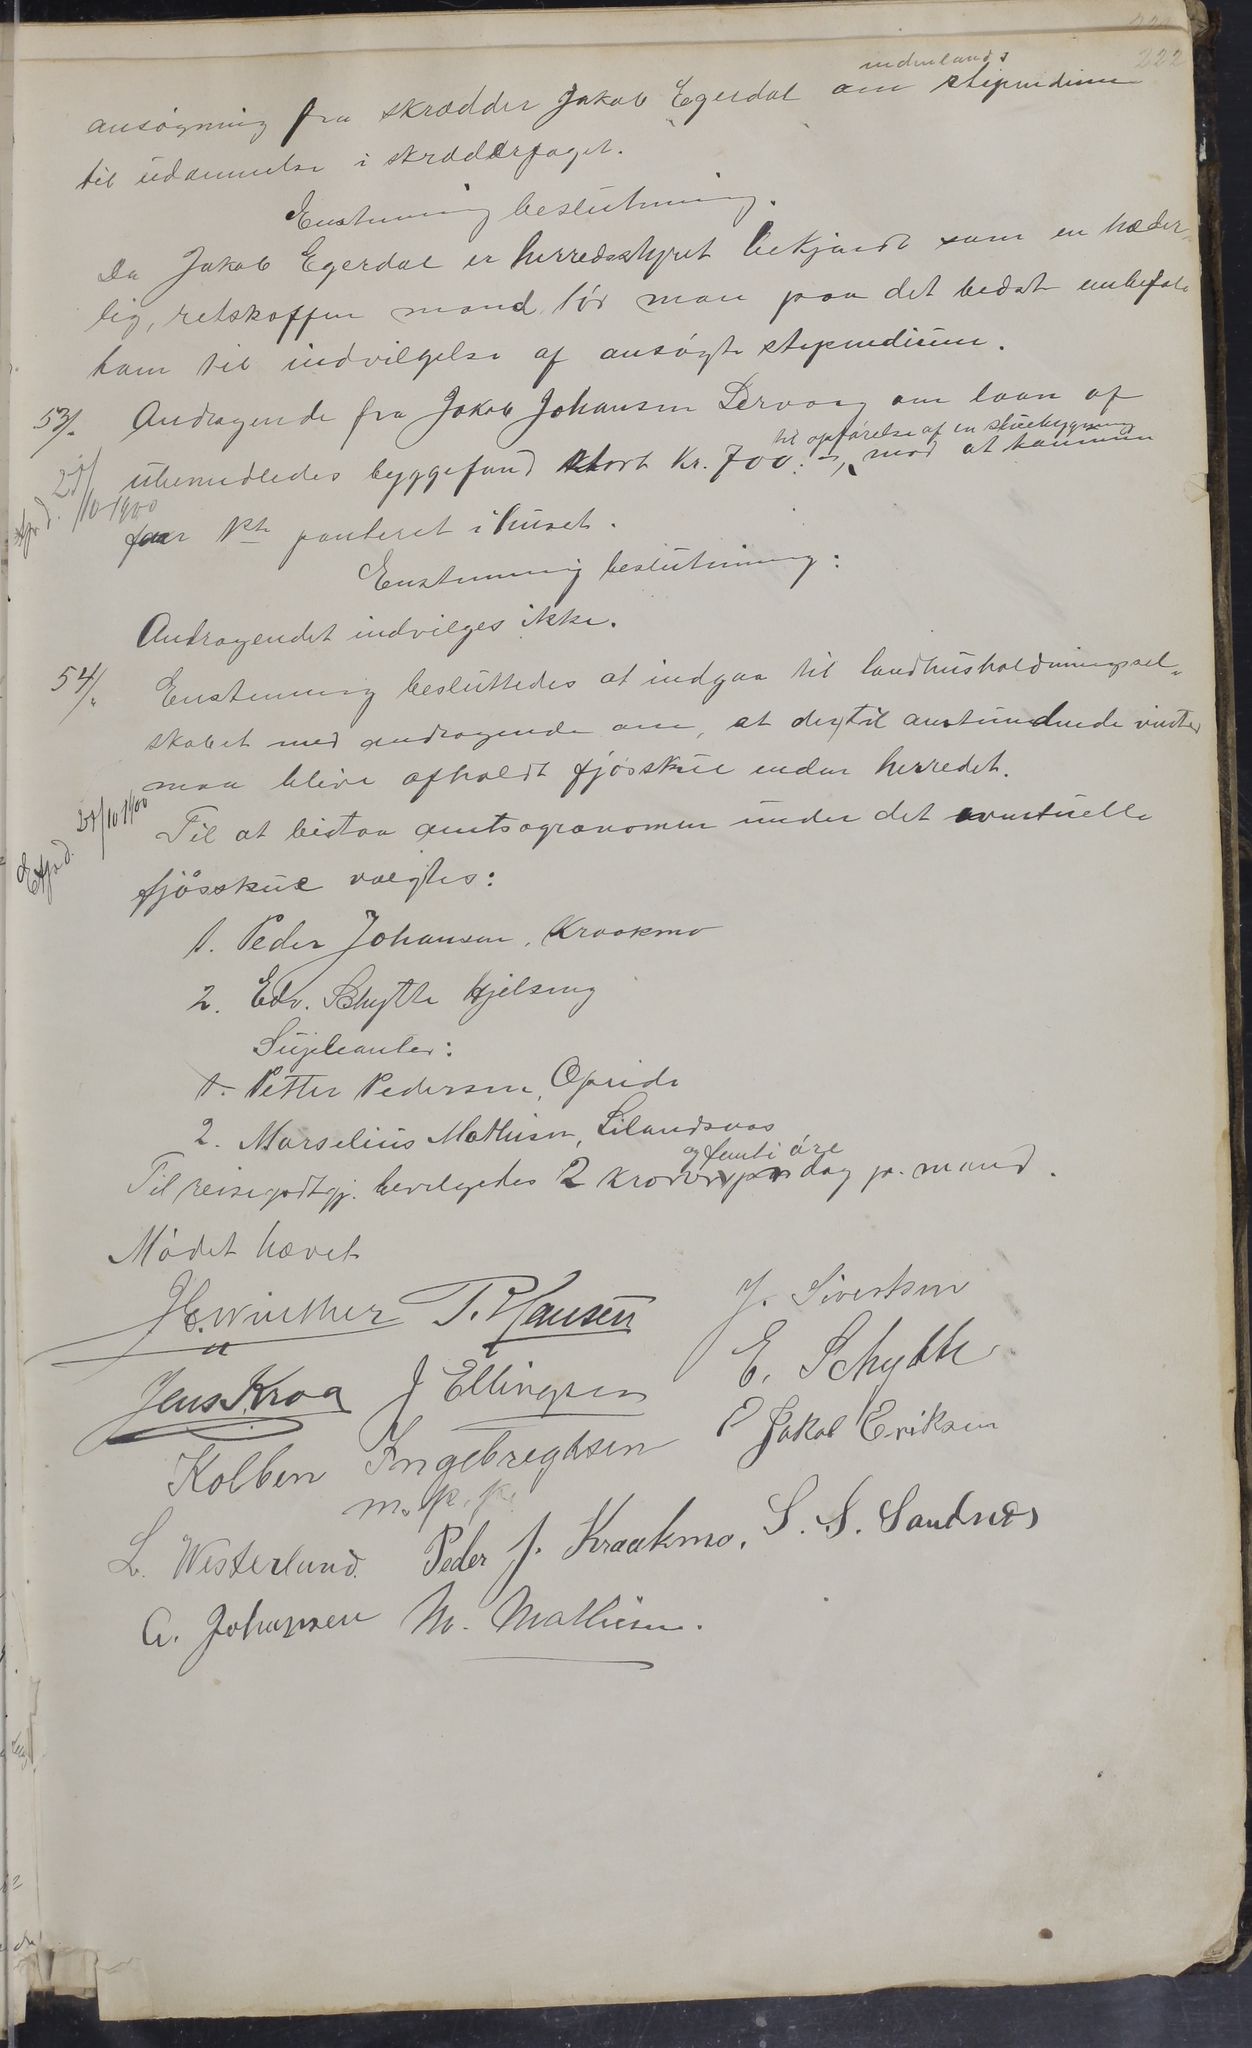 222
indenlands
ansøgning fra skrædder Jakob Egerdal om stipendium
til uddannelse i skrædderfaget.
Enstemmig beslutning.
Da Jakob Egerdal er herredsstyret bekjendt som en hæder-
lig, retskaffen mand, tør man paa det bedste anbefale
ham til indvilgelse af ansøgte stipendium.
53/. Andragende fra Jakob Johansen Dervaag om laan af
til opførelse af en stuebygning
ubemidledes byggefund stort kr. 700:-, mod at kommunen
27/10-1900
faar 1ste panteret i huset.
Enstemmig beslutning:
Andragendet indvilges ikke.
54/. Enstemmig besluttedes at indgaa til landhusholdningssel-
skabet med andragende om, at der til anstundende vinter
maa blive afholdt fjøsskue inden herredet.
Exp.d. 27/10 1900
Til at bistaa amtsagronomen under det eventuelle
fjøsskue valgtes:
1. Peder Johansen, Kraakmo
2. Edv. Schytte Hjelseng
Supleanter:
1. Petter Pedersen, Opeide
2. Marselius Mathisen, Lilandsvas
og femti øre
Til reisegodtgj. bevilgedes 2 kroner pr. dag pr. mand.
Mødet hævet
J.C. Winther P. Hansen J. Sivertsen
Jens Kroa J Ellingsen E. Schytte
Kolben Ingebregtsen P Jakob Eriksen
m. p. p.
L. Westerlund. Peder J. Kraakmo. S. S. Sandnes
A. Johansen M. Mathisen.